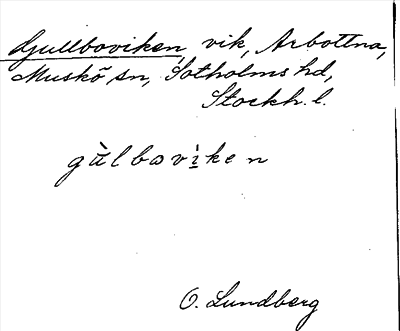 Gullboviken, vik, Arbottna,
Muskö sn, Sotholms hd,
Stockh. l.
gùlbovìken
O. Lundberg